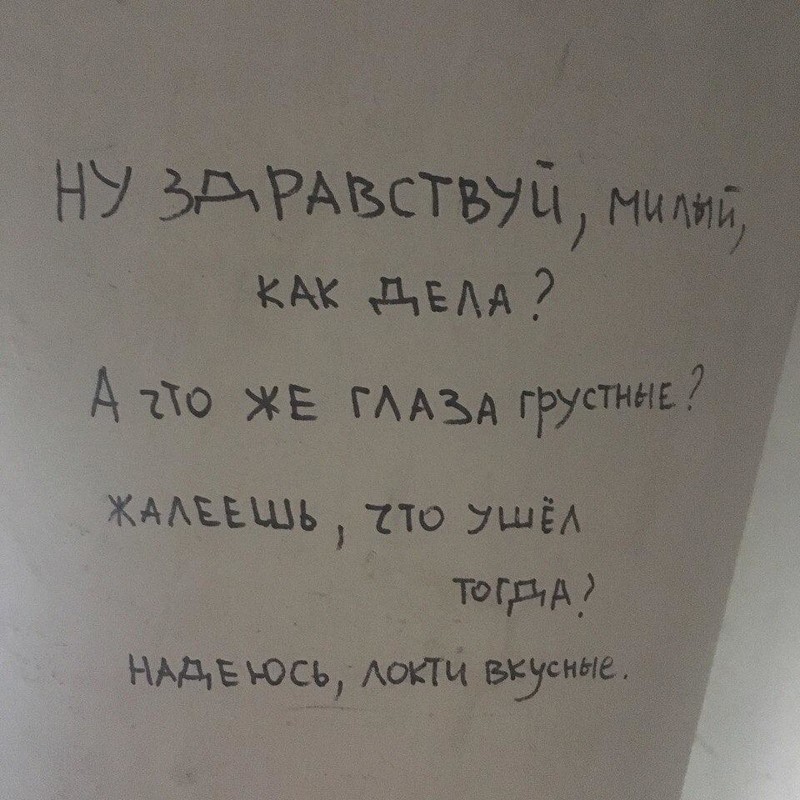 НУ ЗДРАВСТВУЙ, МИЛЫЙ,
КАК ДЕЛА?
А ЧТО ЖЕ ГЛАЗА ГРУСТНЫЕ?
ЖАЛЕЕШЬ, ЧТО УШЁЛ
ТОГДА?
НАДЕЮСЬ, ЛОКТИ ВКУСНЫЕ.